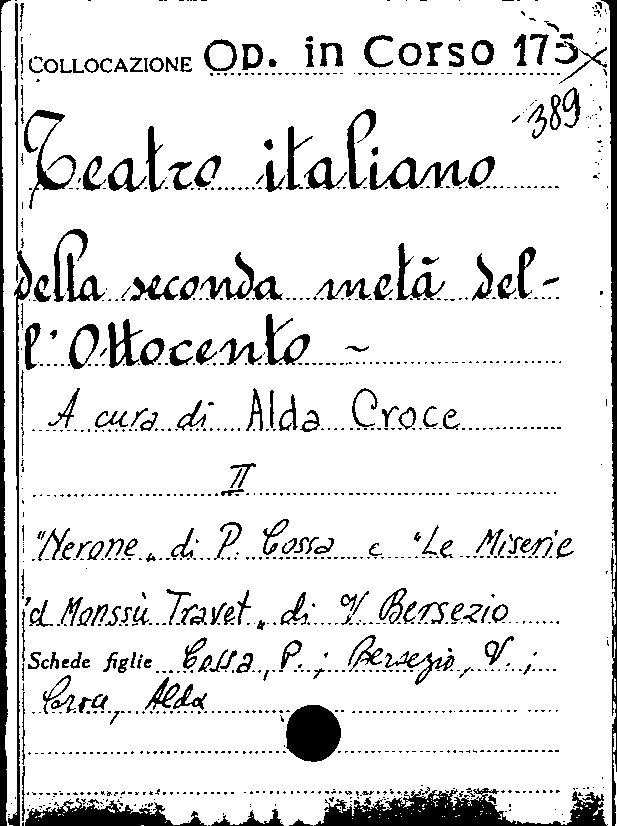 COLLOCAZIONE Op. in Corso 175
389
Teatro italiano
della seconda metà del-
l'Ottocento -
A cura di Alda Croce
II
"Nerone„ di P. Cossa e "Le Miserie
'd Monssù Travet„ di V. Bersezio
Schede figlie Cossa, P.; Bersezio, V.;
Croce, Alda